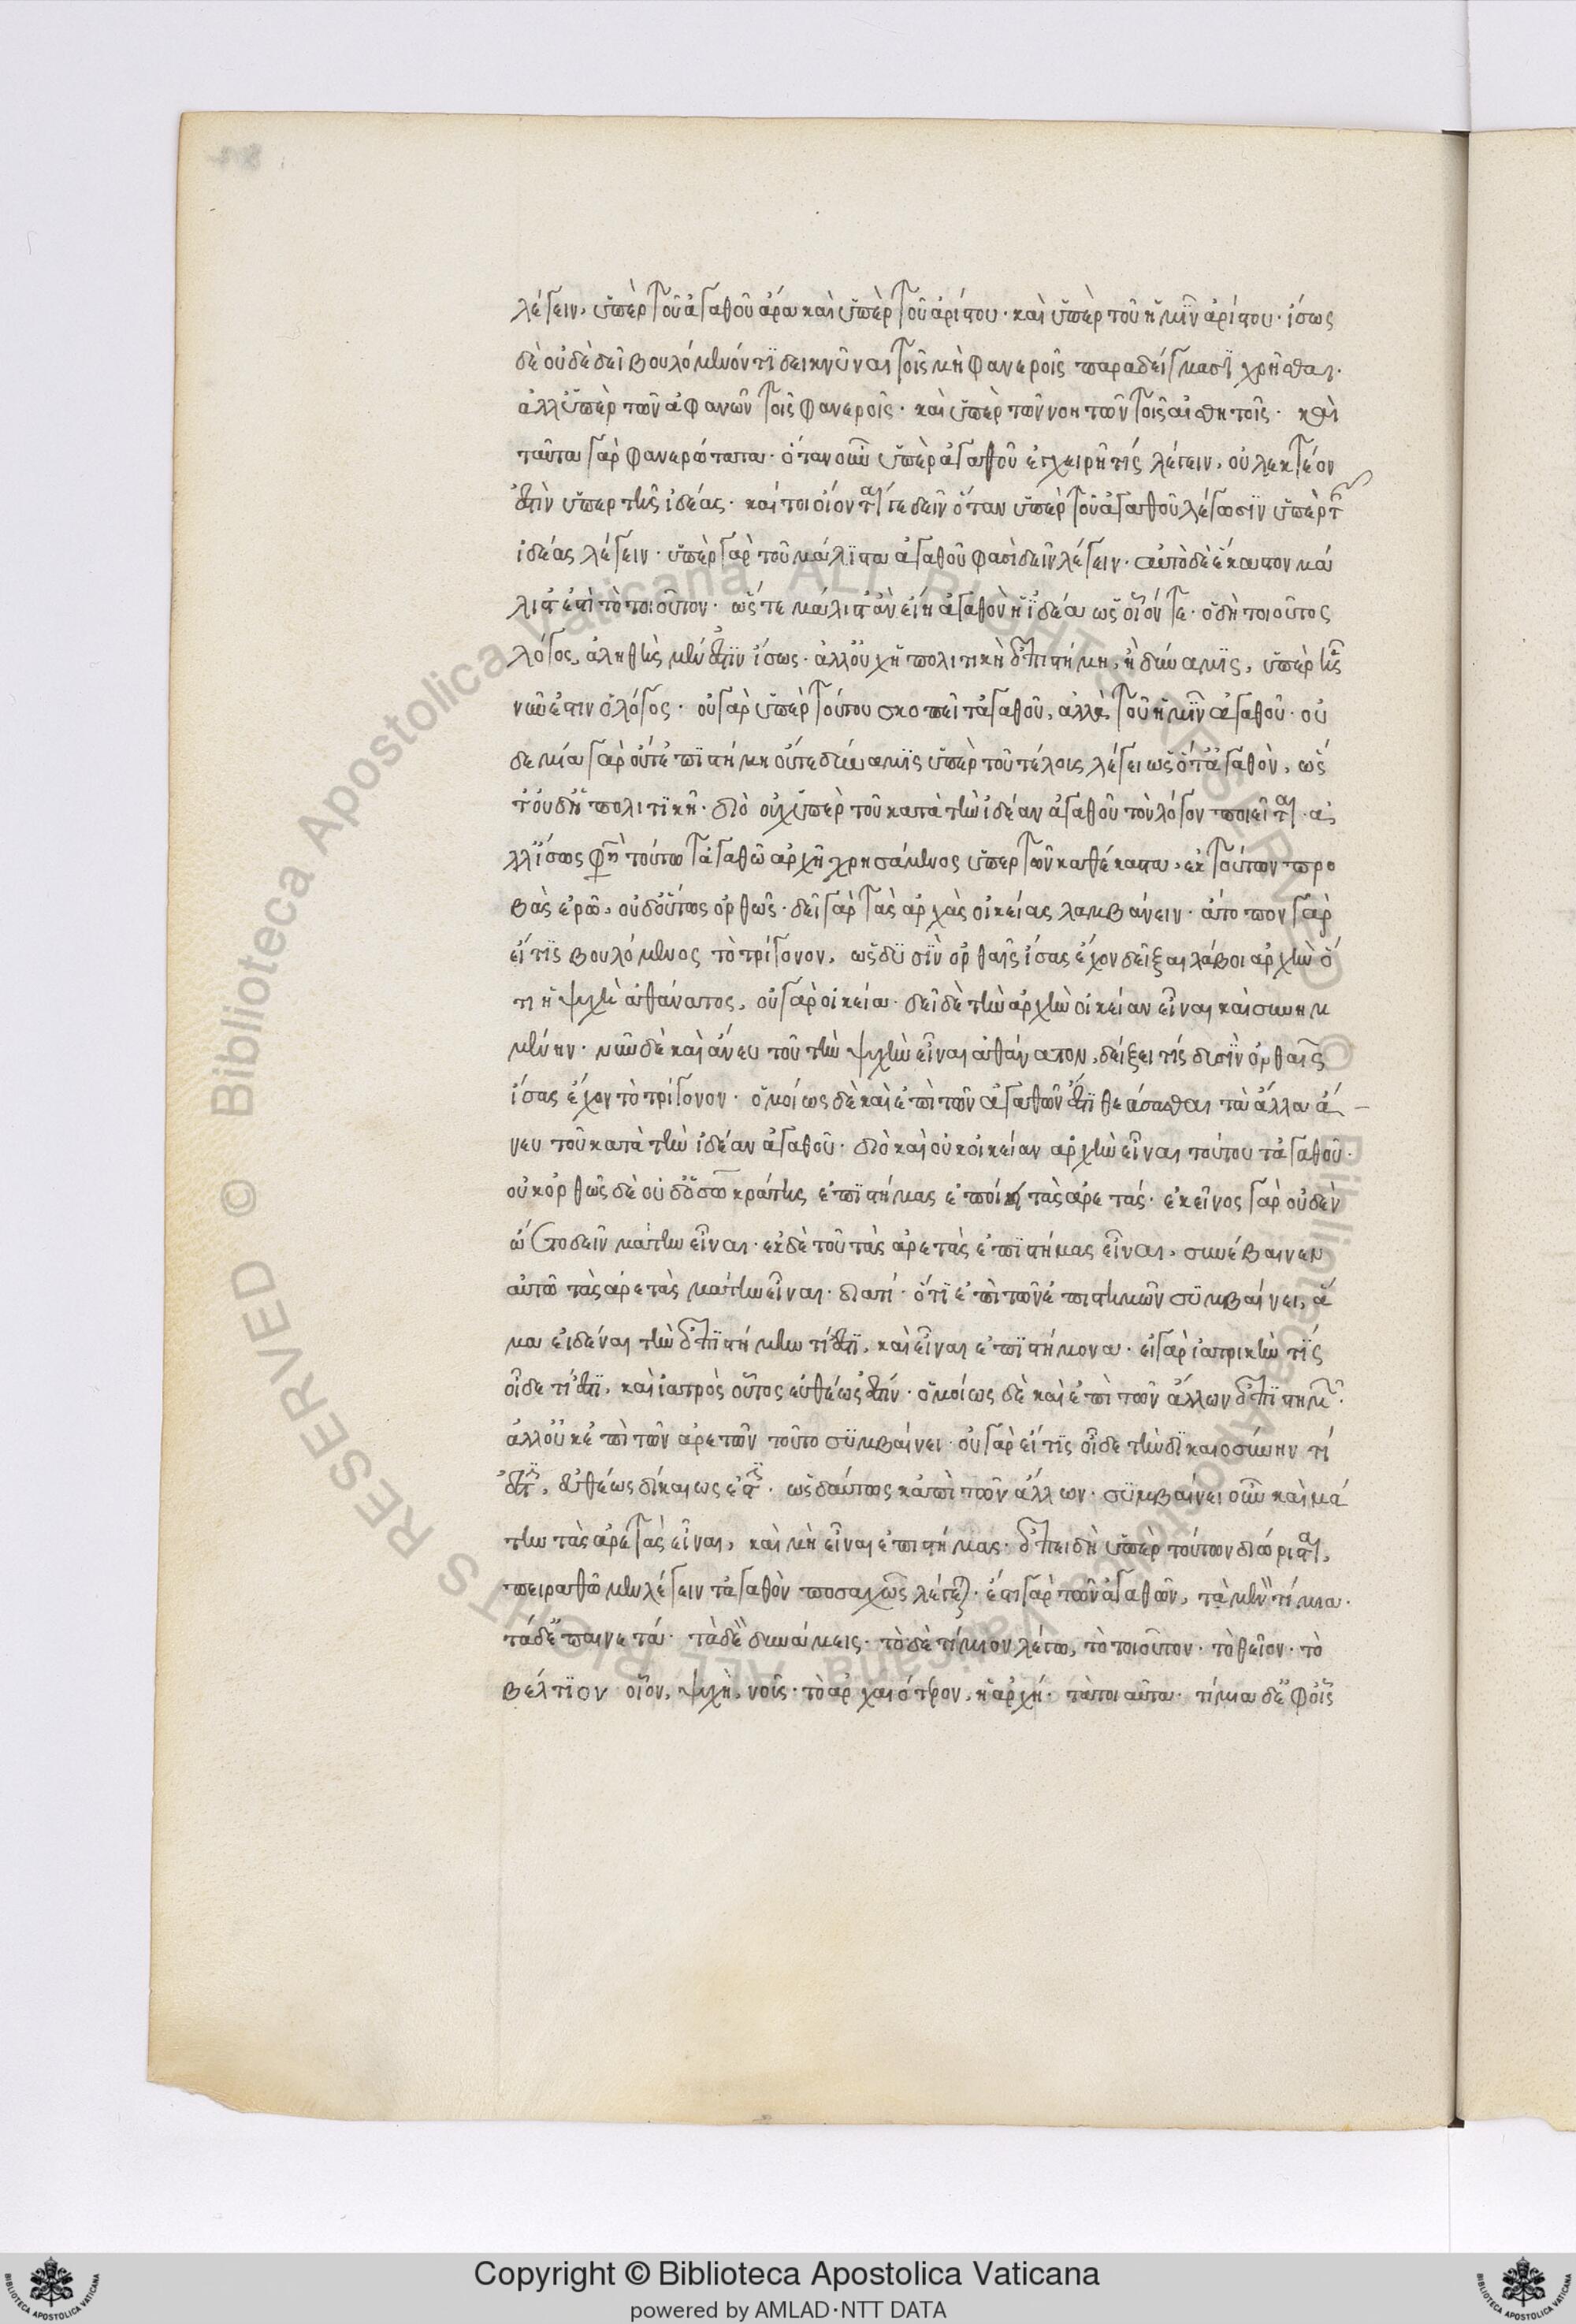 λέγειν, ὑπὲρ τοῦ ἀγαθοῦ ἄρα καὶ ὑπὲρ τοῦ ἀρίστου· καὶ ὑπὲρ τοῦ ἡμῖν ἀρίστου· ἴσως
δὲ οὐδὲ δεῖ βουλόμενόν τι δεικνῦναι τοῖς μὴ φανεροῖς παραδείγμασι χρῆσθαι·
ἀλλ' ὑπὲρ τῶν ἀφανῶν τοῖς φανεροῖς· καὶ ὑπὲρ τῶν νοητῶν τοῖς αἰσθητοῖς· καὶ
ταῦτα γὰρ φανερώτατα· ὅταν οὖν ὑπὲρ ἀγαθοῦ ἐγχειρῆ τίς λέγειν, οὐ λεκτέον
ἐστὶν ὑπερ τῆς ἰδέας· καί τοι οἴονταί γε δεῖν ὅταν ὑπὲρ τοῦ ἀγαθοῦ λέγωσιν ὑπὲρ τῆς
ἰδέας λέγειν· ὑπὲρ γὰρ τοῦ μάλιστα ἀγαθοῦ φασὶ δεῖν λέγειν· αὐτὸ δὲ ἕκαστον μά
λιστ' ἐστὶ τὸ τοιοῦτον· ὥστε μάλιστ' ἂν εἴη ἀγαθὸν ἡ ἰδέα ὡς οἴονται· ὁ δὴ τοιοῦτος
λόγος, ἀληθὴς μέν ἐστιν ἴσως· ἀλλ' οὐχ ἡ πολιτικὴ ἐπιστήμη, ἢ δύναμις, ὑπὲρ ἧς
νῦν ἐστιν ὁ λόγος· οὐ γὰρ ὑπὲρ τούτου σκοπεῖ τἀγαθοῦ, ἀλλὰ τοῦ ἡμῖν ἀγαθοῦ· οὐ
δεμία γὰρ οὔτ' ἐπιστήμη οὔτε δύναμις ὑπὲρ τοῦ τέλους λέγει ὡς ὅτ' ἀγαθὸν, ὥς
τ' οὐδ' ἡ πολιτική· διὸ οὐχ ὑπὲρ τοῦ κατὰ τὴν ἰδέαν ἀγαθοῦ τὸν λόγον ποιεῖται· ἀ
λλ' ἴσως φησὶ τούτω τἀγαθῶ ἀρχῆ χρησάμενος ὑπερ τῶν καθέκαστα, ἐκ τούτων προ
βὰς ἐρῶ, οὐδ' οὕτως ὀρθῶς· δεῖ γὰρ τὰς ἀρχὰς οἰκείας λαμβάνειν· ἄτοπον γὰρ
εἴ τις βουλόμενος τὸ τρίγονον, ὡς δυσὶν ὀρθαῖς ἴσας ἔχον δεῖξαι λάβοι ἀρχὴν ὅ
τι ἡ ψυχὴ ἀθάνατος, οὐ γὰρ οἰκεία· δεῖ δὲ τὴν ἀρχὴν οἰκείαν εἶναι καὶ συνημ
μένην· νῦν δὲ καὶ ἄνευ τοῦ τὴν ψυχὴν εἶναι ἀθάνατον, δείξει τίς δυσὶν ὀρθαῖς
ἴσας ἔχον τὸ τρίγονον· ὁμοίως δὲ καὶ ἐπὶ τῶν ἀγαθῶν ἔστι θεάσασθαι τὰ ἄλλα ἄ
νευ τοῦ κατὰ τὴν ἰδέαν ἀγαθοῦ· διὸ καὶ οὐκ οἰκείαν ἀρχὴν εἶναι τούτου τἀγαθοῦ·
οὐκ ὀρθῶς δὲ οὐδ' ὁ σωκράτης ἐπιστήμας ἐποίει τὰς ἀρετάς· ἐκεῖνος γὰρ οὐδὲν
ὤετο δεῖν μάτην εἶναι· ἐκ δὲ τοῦ τὰς ἀρετὰς ἐπιστήμας εἶναι, συνέβαινεν
αὐτῶ τὰς ἀρετὰς μάτην εἶναι· διατί· ὅτι ἐπὶ τῶν ἐπιστημῶν συμβαίνει, ἅ
μα εἰδέναι τὴν ἐπιστήμην τί ἐστι, καὶ εἶναι ἐπιστήμονα· εἰ γὰρ ἰατρικὴν τίς
οἶδε τί ἐστι, καὶ ἰατρὸς οὗτος εὐθέως ἐστίν· ὁμοίως δὲ καὶ ἐπὶ τῶν ἄλλων ἐπιστημῶν·
ἀλλ' οὐκ ἐπὶ τῶν ἀρετῶν τοῦτο συμβαίνει· οὐ γὰρ εἴ τις οἶδε τὴν δικαιοσύνην τί
ἐστιν, εὐθέως δίκαιως ἐστι· ὡς δαύτως κἀπὶ τῶν ἄλλων· συμβαίνει οὖν καὶ μά
την τὰς ἀρετὰς εἶναι, καὶ μὴ εἶναι ἐπιστήμας· ἐπειδὴ ὑπὲρ τούτων διώρισται,
πειραθῶμεν λέγειν τἀγαθὸν ποσαχῶς λέγεται· ἔστι γὰρ τῶν ἀγαθῶν, τὰ μὲν τίμια·
τὰ δ' ἐπαινετά· τὰ δὲ δυνάμεις· τὸ δὲ τίμιον λέγω, τὸ τοιοῦτον· τὸ θεῖον· τὸ
βέλτιον οἷον, ψυχὴ, νοῦς· τὸ ἀρχαιότερον, ἡ ἀρχή· τὰ τοιαῦτα· τίμια δ' ἐφ' οἷς
Copyright © Biblioteca Apostolica Vaticana
powered by AMLAD·NTT DATA